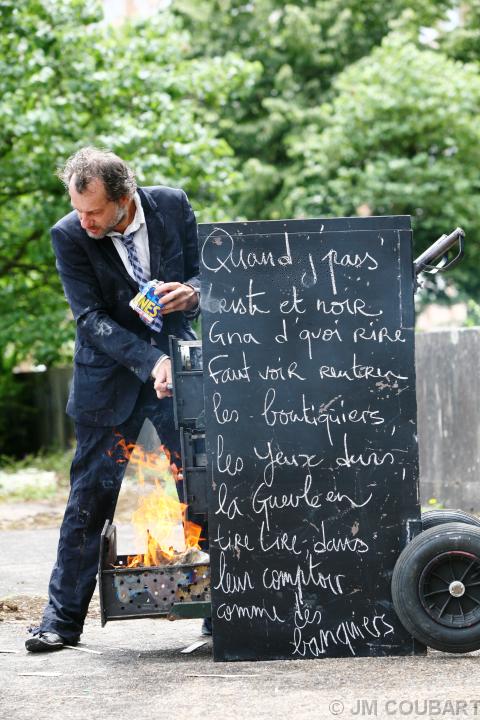 Quand j'pass'
triste et noir,
Gna d'quoi rire
Faut voir rentrer
les boutiquiers,
les yeux durs,
la Gueule en
tire lire, dans
leur comptoir
comme des
banquiers
NES
© JM COUBART